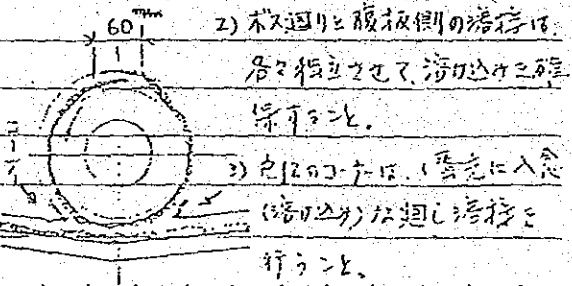 60 mm
2) ボス廻りと腹板側の溶接は、
各々独立させて、溶け込みを確
保すること。
3) コーナーは、 に入念
(溶け込み)な廻し溶接を
行うこと。